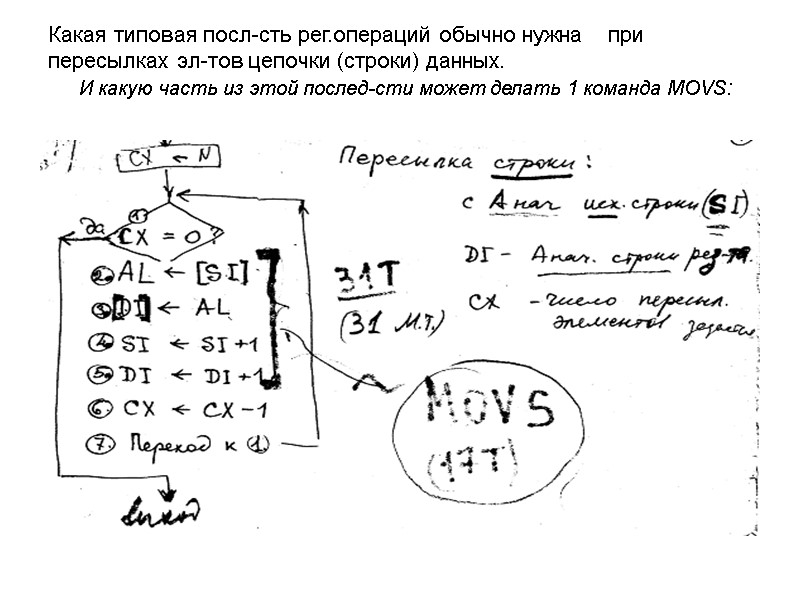 Какая типовая посл-сть рег.операций обычно нужна при
пересылках эл-тов цепочки (строки) данных.
И какую часть из этой послед-сти может делать 1 команда MOVS:
CX ← N
Пересылка строки :
с Анач исх. строки (SI)
DI - Анач. строки рез-та.
CX - число пересыл.
элементов задается
1
да
CX = 0 ?
2. AL ← [SI]
3. [DI] ← AL
4. SI ← SI+1
5. DI ← DI+1
6. CX ← CX-1
7. Переход к 1.
выход
31T
(31 М.Т.)
MOVS
(17T)